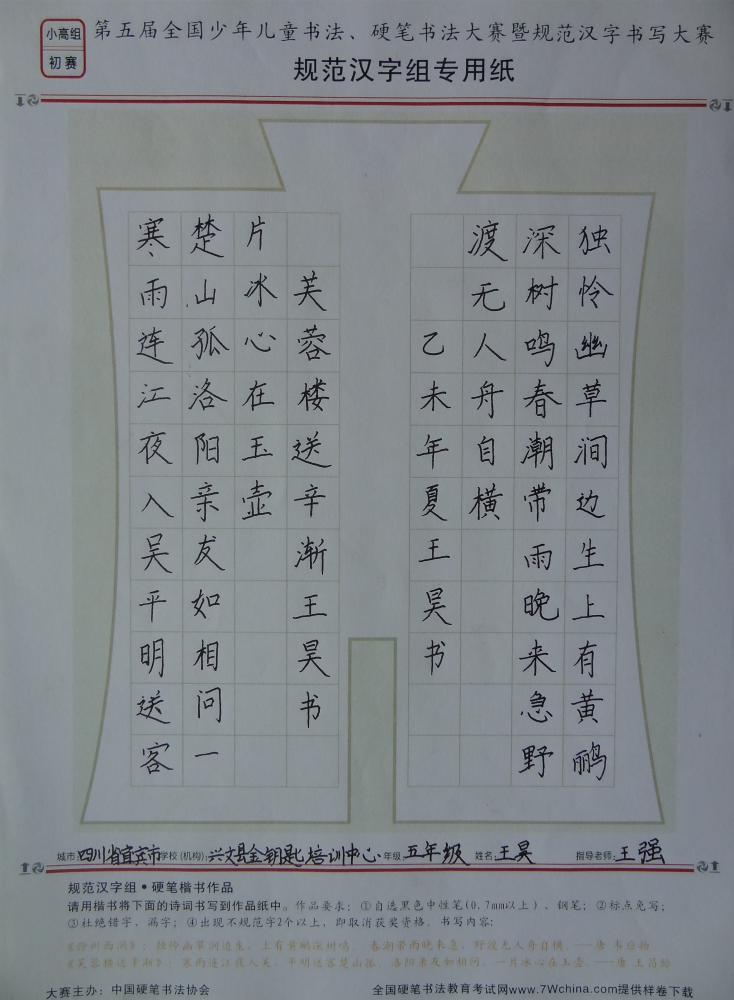 小高组
初赛
第五届全国少年儿童书法、硬笔书法大赛暨规范汉字书写大赛
规范汉字组专用纸
独怜幽草涧边生上有黄鹂
深树鸣春潮带雨晚来急野
渡无人舟自横
乙未年夏王昊书
寒雨连江夜入吴平明送客
楚山孤洛阳亲友如相问一
片冰心在玉壶
芙蓉楼送辛渐王昊书
城市:四川省宜宾市学校(机构):兴文县金钥匙培训中心年级:五年级 姓名:王昊 指导老师:王强
规范汉字组•硬笔楷书作品
请用楷书将下面的诗词书写到作品纸中。作品要求：①自选黑色中性笔(0.7mm以上)、钢笔；②标点免写；
③杜绝错字，漏字；④出现不规范字2个以上，即取消获奖资格。书写内容：
《滁州西涧》：独怜幽草涧边生，上有黄鹂深树鸣。春潮带雨晚来急，野渡无人舟自横。——唐 韦应物
《芙蓉楼送辛渐》：寒雨连江夜入吴，平明送客楚山孤。洛阳亲友如相问，一片冰心在玉壶。——唐 王昌龄
大赛主办：中国硬笔书法协会
全国硬笔书法教育考试网www.7Wchina.com提供样卷下载